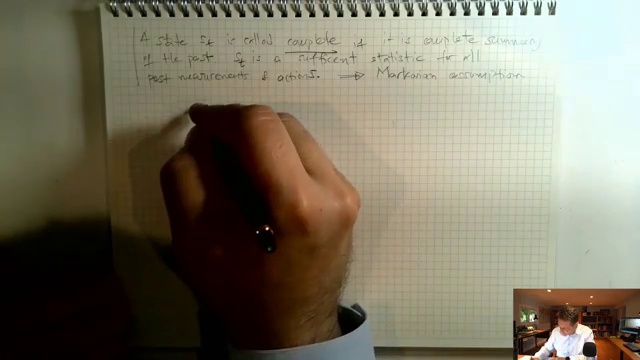 A state St is called complete if it is complete summary
of the past St is a sufficent statistic for all
past measurements & actions. ⟹ Markovian assumption